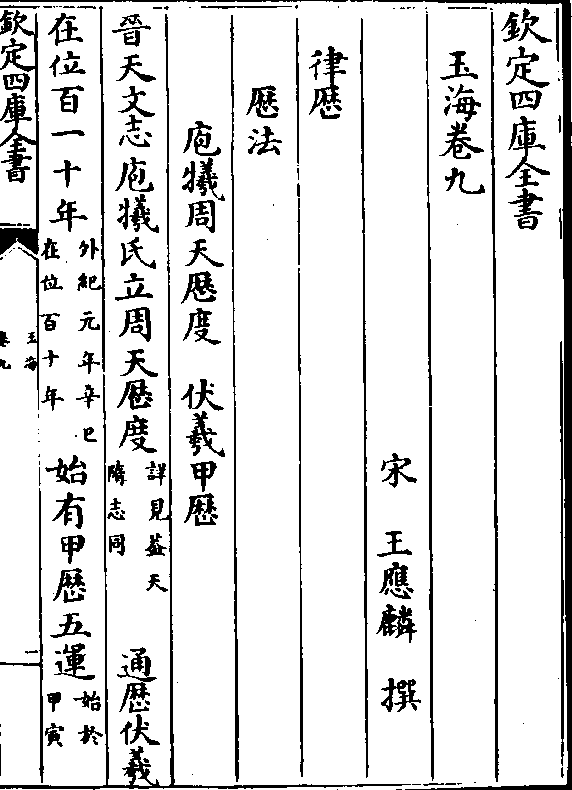 欽定四庫全書
玉海卷九
宋　王應麟　撰
律厯
厯法
庖犧周天厯度　伏羲甲厯
晉天文志庖犧氏立周天厯度詳見蓋天隋志同　通厯伏羲
在位百一十年外紀元年辛巳在位百十年始有甲厯五運始於甲寅
欽定四庫全書
玉海
卷九